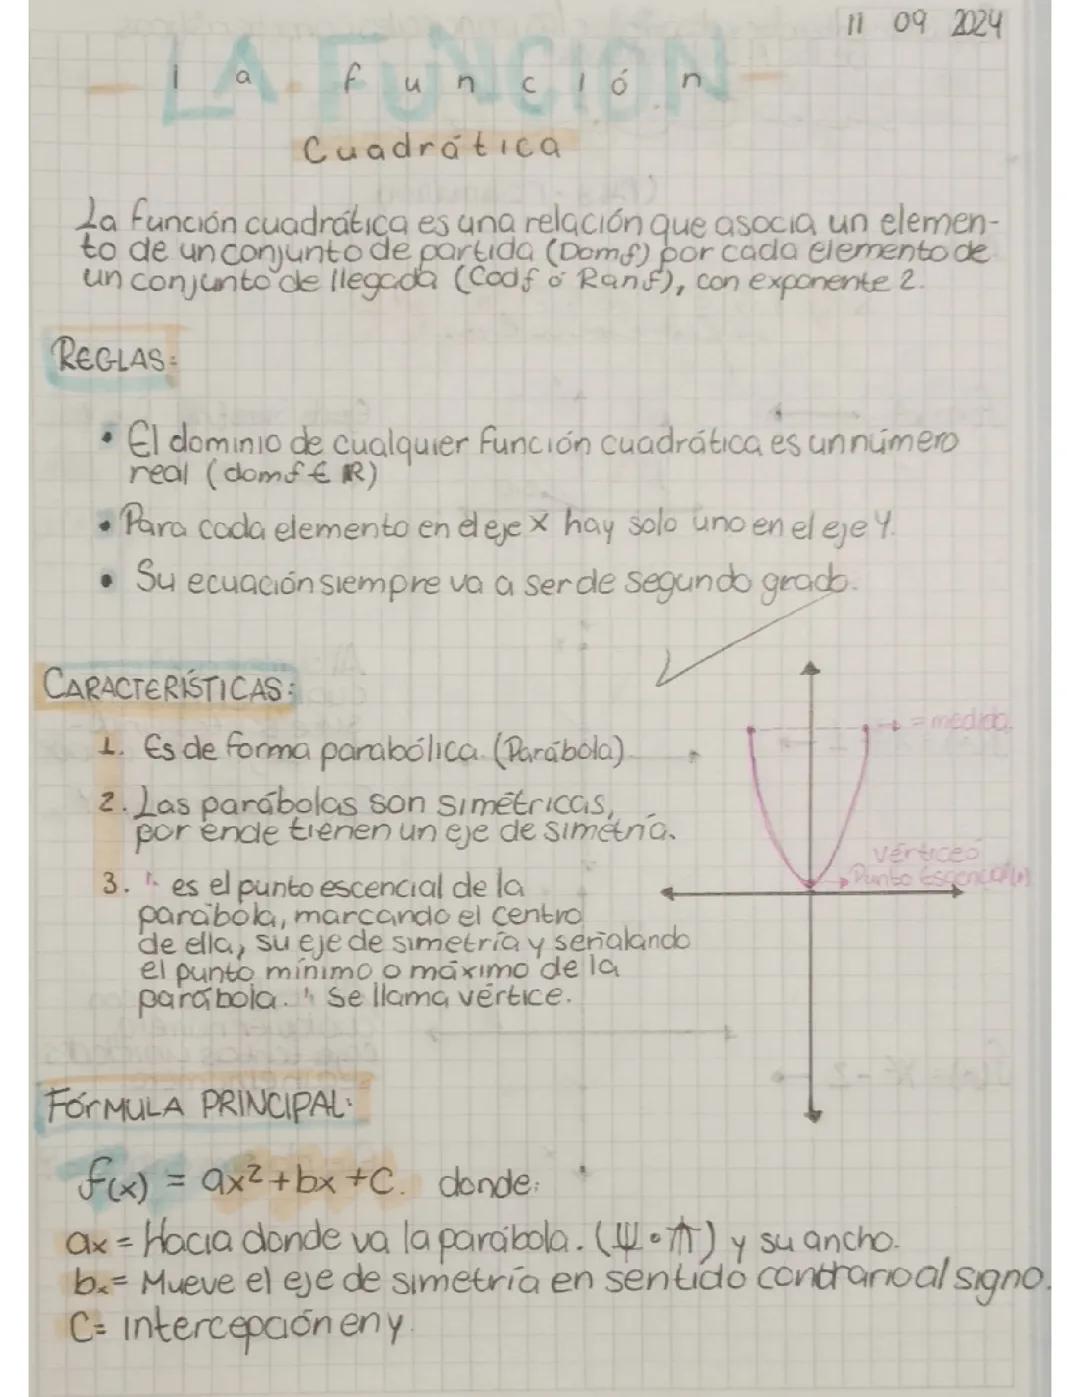 11 09 2024
LA FUNCIÓN
la función
Cuadrática
La función cuadrática es una relación que asocia un elemen-
to de un conjunto de partida (Domf) por cada elemento de
un conjunto de llegada (Codf ó Ranf), con exponente 2.
REGLAS:
• El dominio de cualquier función cuadrática es un número
real (domf € ℝ)
• Para cada elemento en el eje X hay solo uno en el eje Y.
• Su ecuación siempre va a ser de segundo grado.
CARACTERÍSTICAS:
1. Es de forma parabólica. (Parábola).
= medida.
2. Las parábolas son simétricas,
por ende tienen un eje de simetría.
Vértice ó
Punto Escencial
3. " es el punto escencial de la
parábola, marcando el centro
de ella, su eje de simetría y señalando
el punto mínimo o máximo de la
parábola. " Se llama vértice.
FÓRMULA PRINCIPAL:
f(x) = ax²+bx+C. donde:
ax = Hacia donde va la parábola. y su ancho.
bx = Mueve el eje de simetría en sentido contrario al signo.
C = intercepción en y.